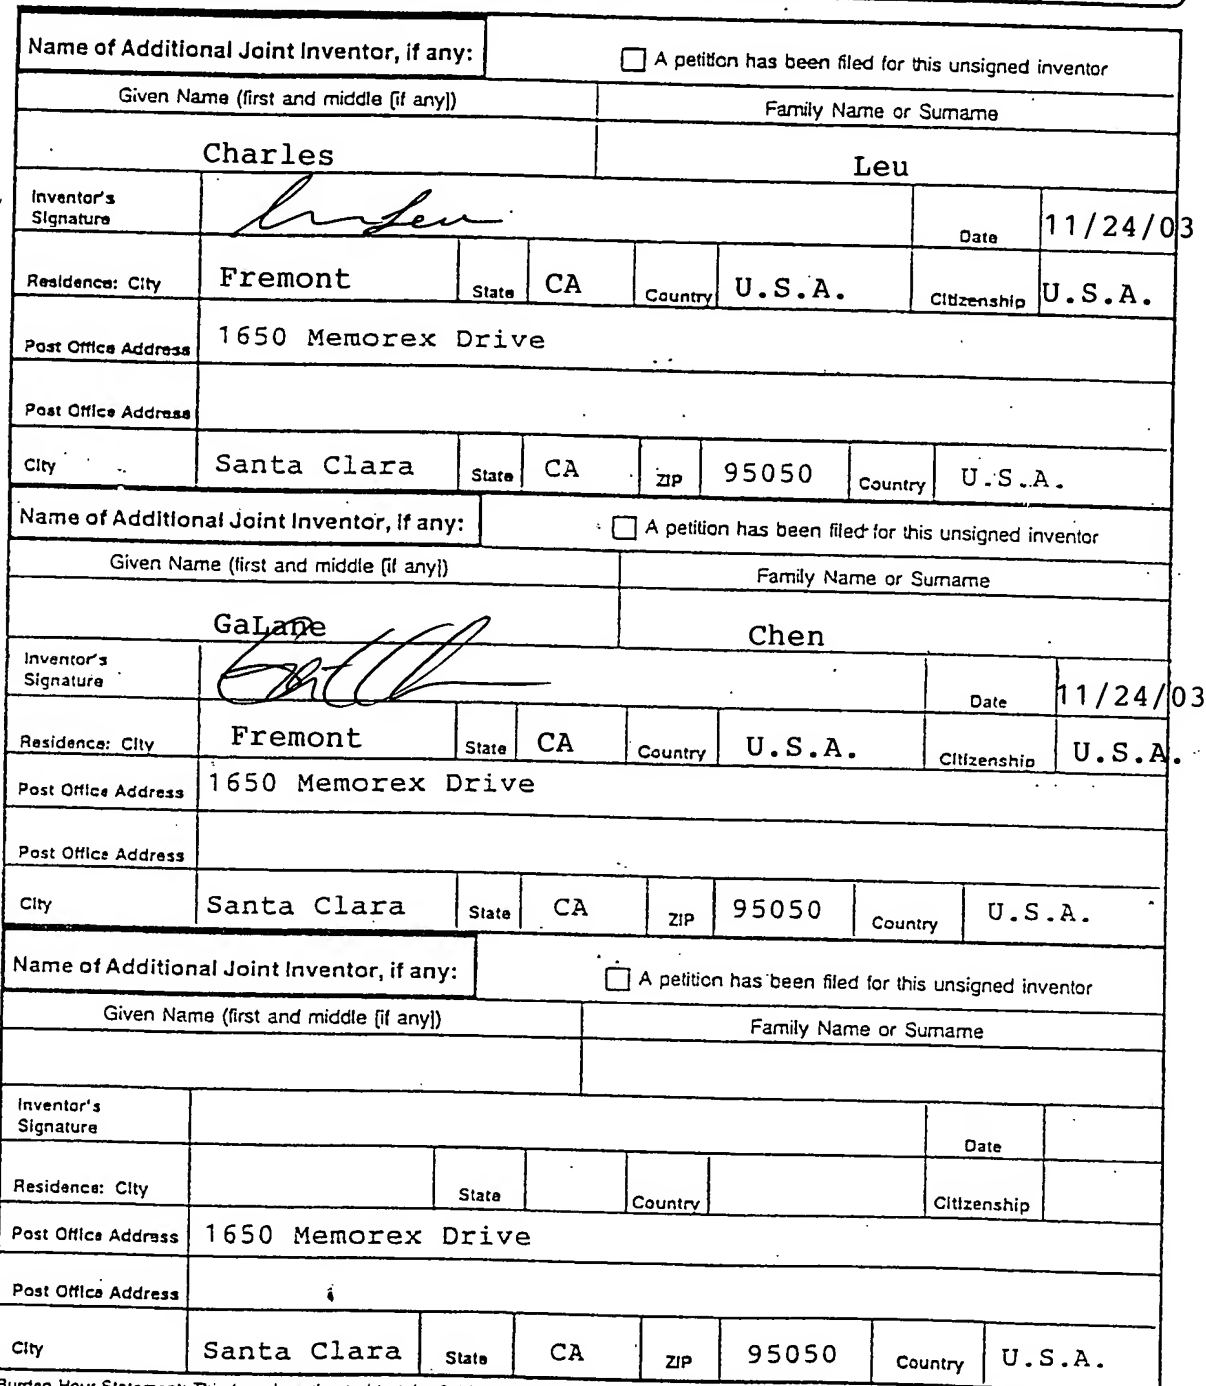 Name of Additional Joint Inventor, if any: A petition has been filed for this unsigned inventor
Given Name (first and middle [if any]) Family Name or Surname
Charles Leu
Inventor's Signature Date 11/24/03
Residence: City Fremont State CA Country U.S.A. Citizenship U.S.A.
Post Office Address 1650 Memorex Drive
Post Office Address
City Santa Clara State CA ZIP 95050 Country U.S.A.
Name of Additional Joint Inventor, if any: A petition has been filed for this unsigned inventor
Given Name (first and middle [if any]) Family Name or Surname
GaLane Chen
Inventor's Signature Date 11/24/03
Residence: City Fremont State CA Country U.S.A. Citizenship U.S.A.
Post Office Address 1650 Memorex Drive
Post Office Address
City Santa Clara State CA ZIP 95050 Country U.S.A.
Name of Additional Joint Inventor, if any: A petition has been filed for this unsigned inventor
Given Name (first and middle [if any]) Family Name or Surname
Inventor's Signature Date
Residence: City State Country Citizenship
Post Office Address 1650 Memorex Drive
Post Office Address
City Santa Clara State CA ZIP 95050 Country U.S.A.